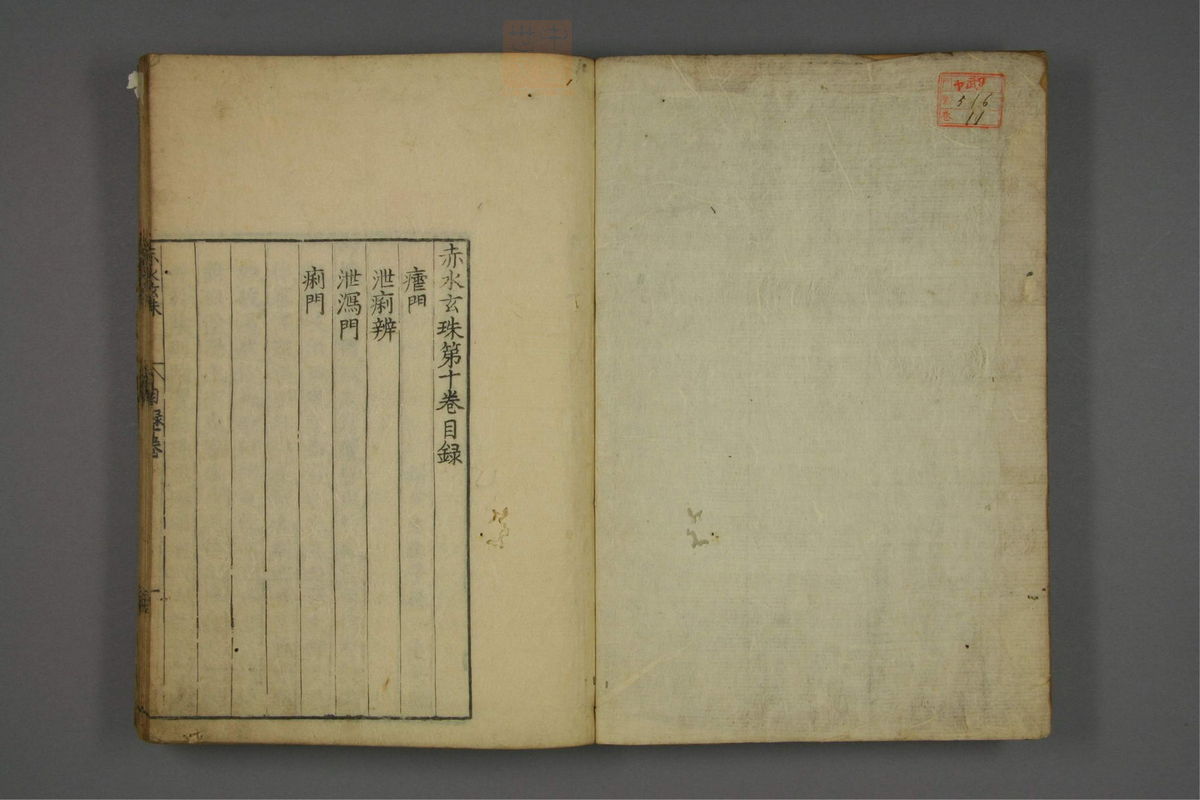 516
11
赤水玄珠第十卷目録
瘧門
泄痢辨
泄瀉門
痢門
赤水玄珠
目録卷